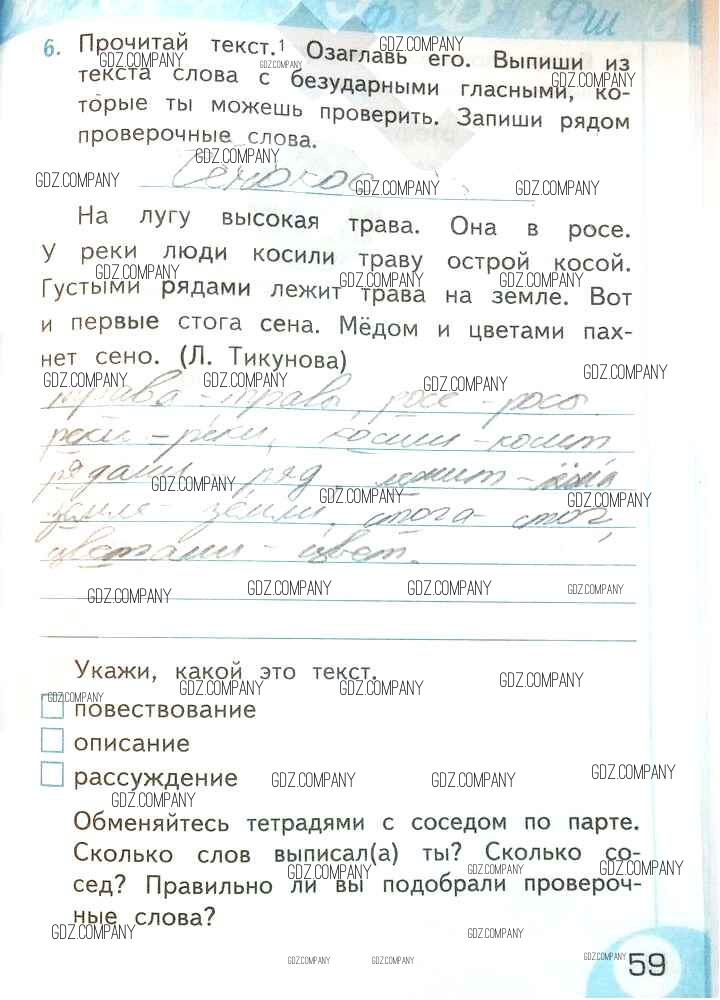 6. Прочитай текст.¹ Озаглавь его. Выпиши из
текста слова с безударными гласными, ко-
торые ты можешь проверить. Запиши рядом
проверочные слова.
Сенокос
На лугу высокая трава. Она в росе.
У реки люди косили траву острой косой.
Густыми рядами лежит трава на земле. Вот
и первые стога сена. Мёдом и цветами пах-
нет сено. (Л. Тикунова)
трава - травы, росе - росы
реки - реки, косили - косит
рядами - ряд, лежит -
земле - земли, стога - стог,
цветами - цвет.
Укажи, какой это текст.
повествование
описание
рассуждение
Обменяйтесь тетрадями с соседом по парте.
Сколько слов выписал(а) ты? Сколько со-
сед? Правильно ли вы подобрали провероч-
ные слова?
59
GDZ.COMPANY